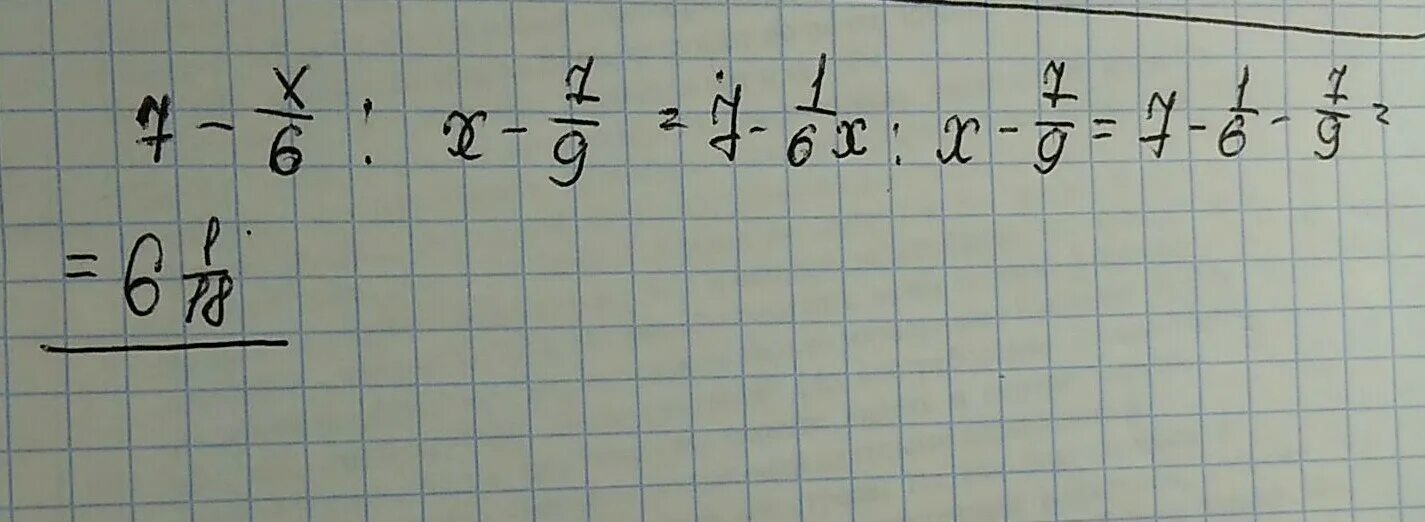 7 - x/6 : x - 7/9 = 7 - 1/6 x : x - 7/9 = 7 - 1/6 - 7/9 =
= 6 1/18